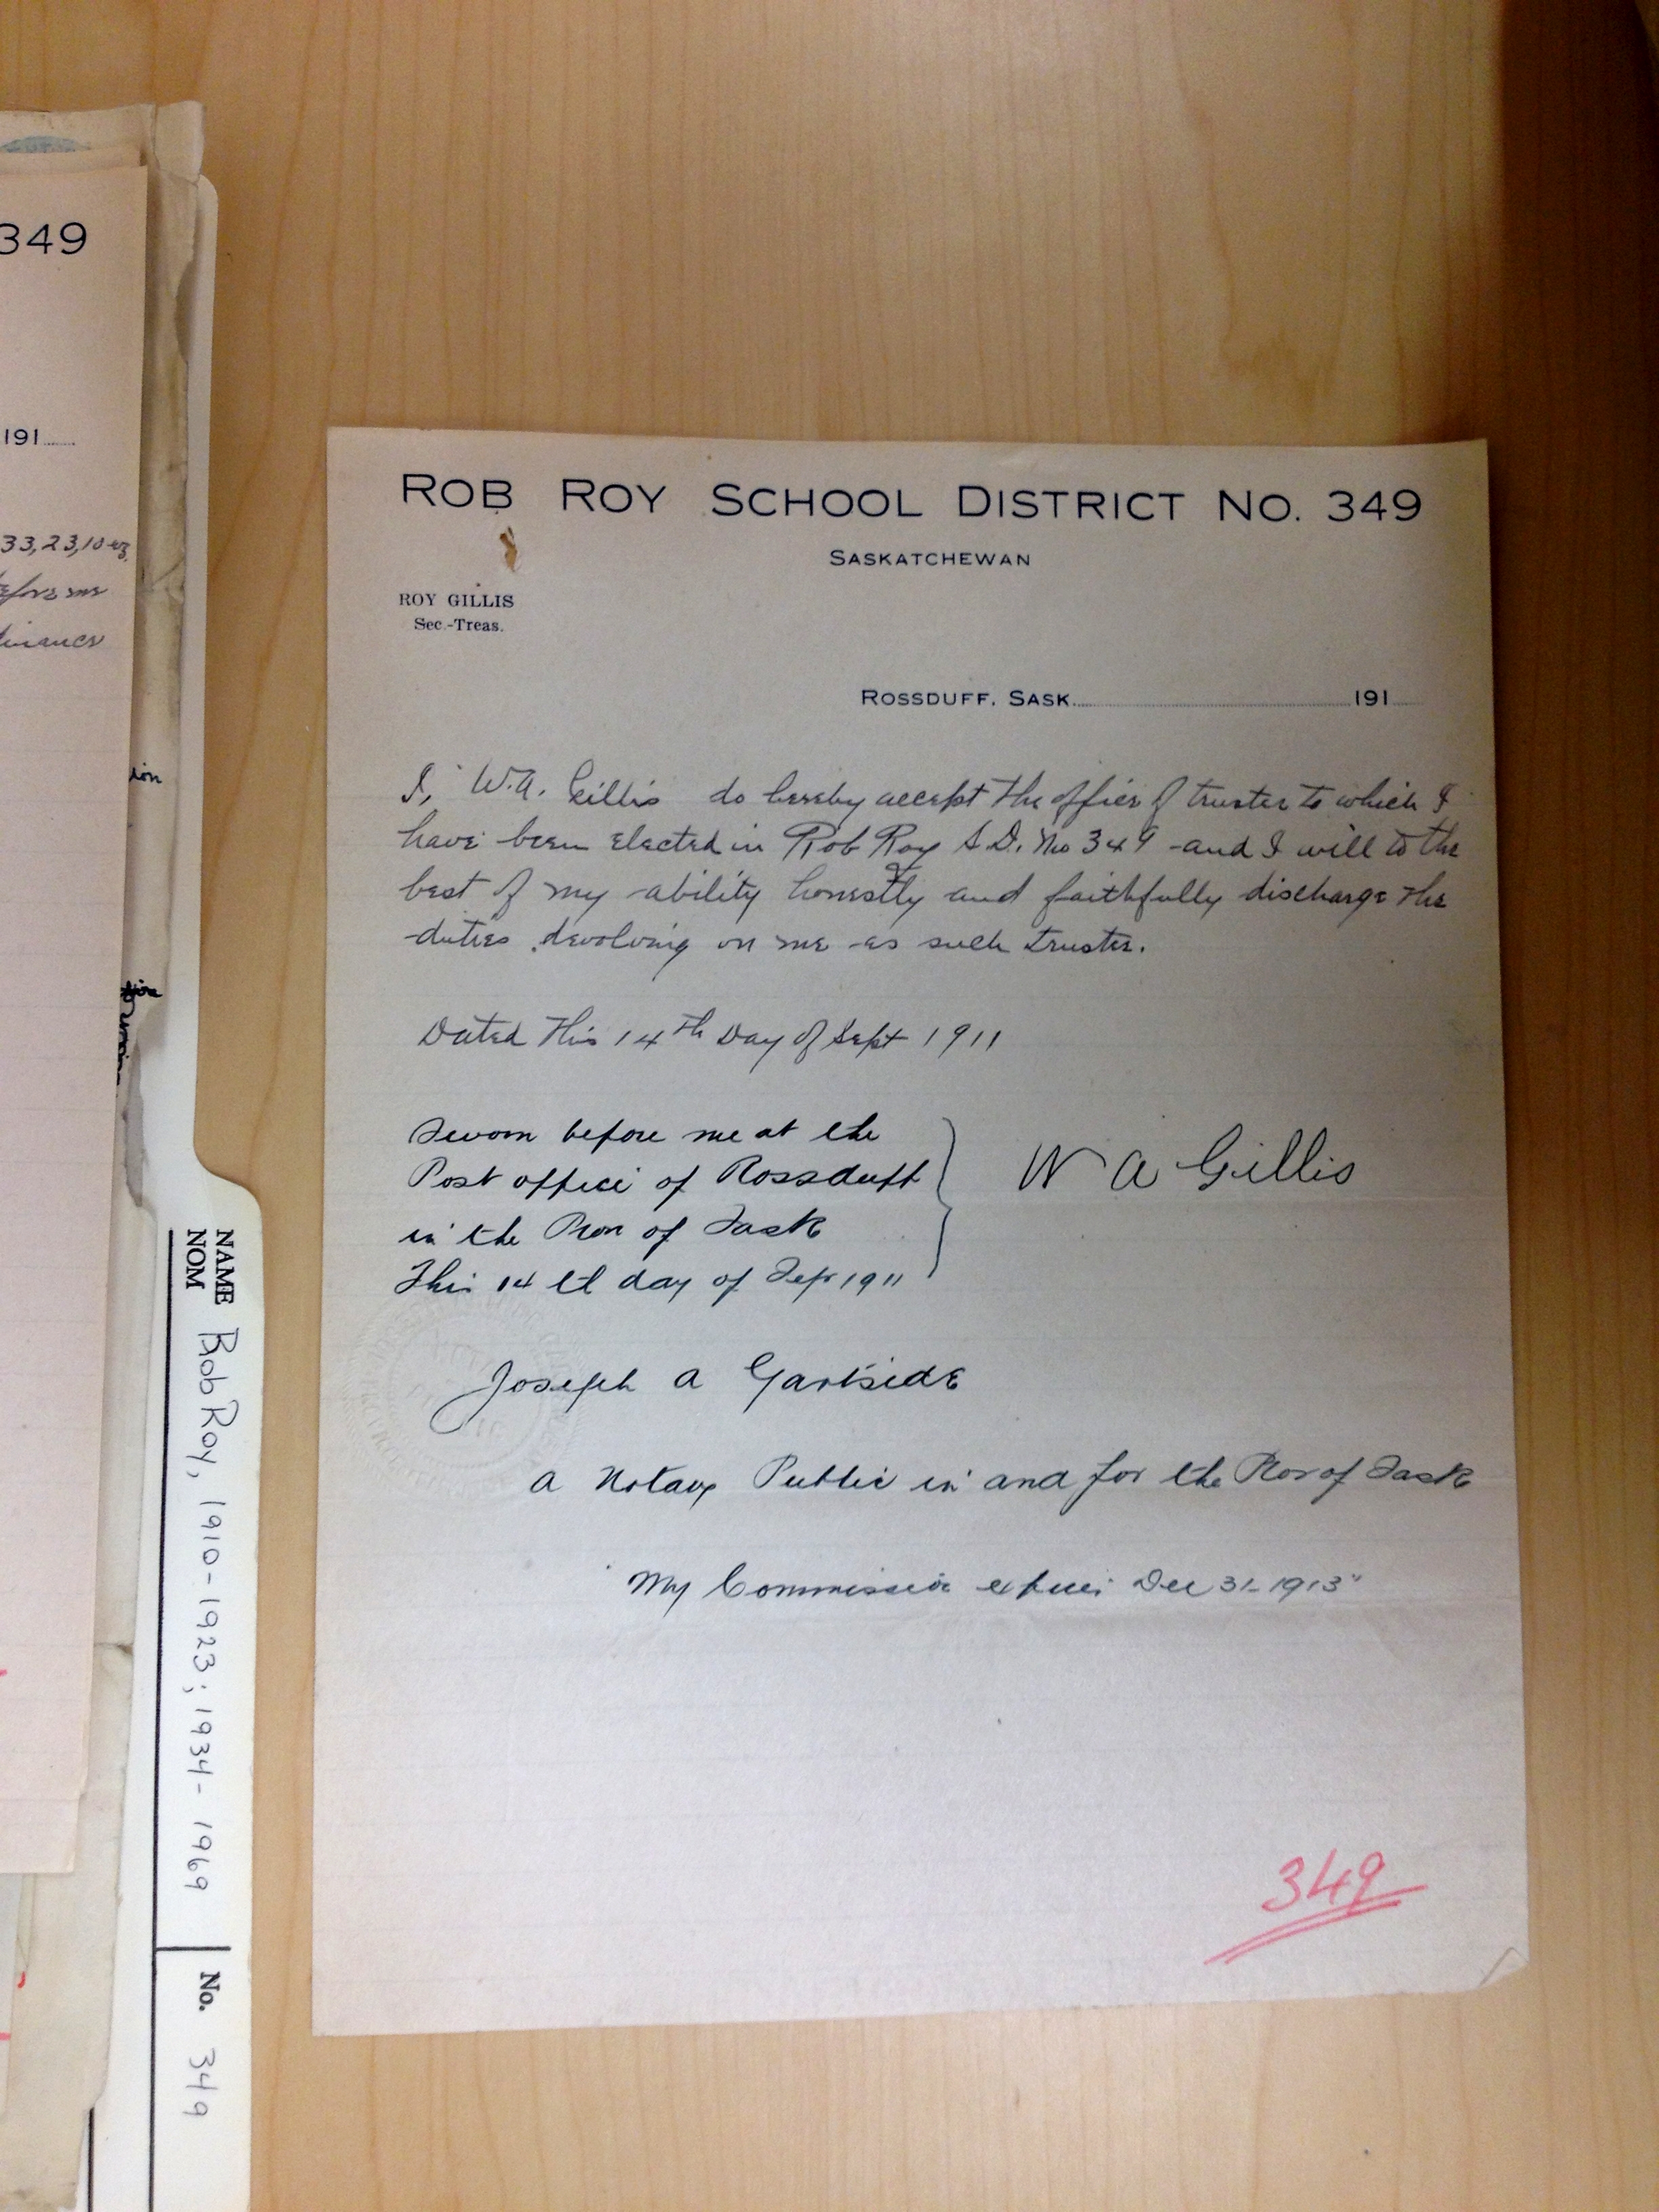 349
191
33,23,10
before me
ROB ROY SCHOOL DISTRICT NO. 349
SASKATCHEWAN
ROY GILLIS
Sec.-Treas.
ROSSDUFF, SASK. 191
I, W.A. Gillis do hereby accept the office of trustee to which I
have been elected in Rob Roy S.D. No 349 and I will to the
best of my ability honestly and faithfully discharge the
duties devolving on me as such trustee.
Dated this 14th Day of Sept 1911
Sworn before me at the
Post office of Rossduff
in the Prov of Sask
This 14 th day of Sep 1911
W A Gillis
Joseph A Gartside
a Notary Public in and for the Prov of Sask
My Commission expires Dec 31-1913
349
NAME
NOM
Bob Roy, 1910-1923; 1934-1969
No. 349